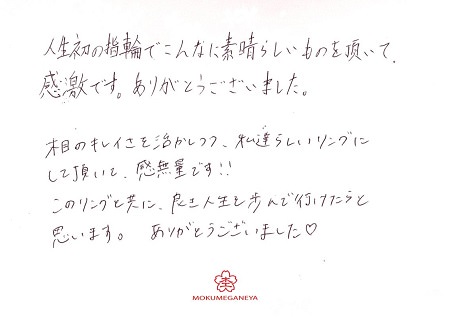 人生初の指輪でこんなに素晴らしいものを頂いて、
感激です。ありがとうございました。
木目のキレイさを活かしつつ、私達らしいリングに
して頂いて、感無量です!!
このリングと共に、良き人生を歩んで行けたらと
思います。 ありがとうございました♡
MOKUMEGANEYA